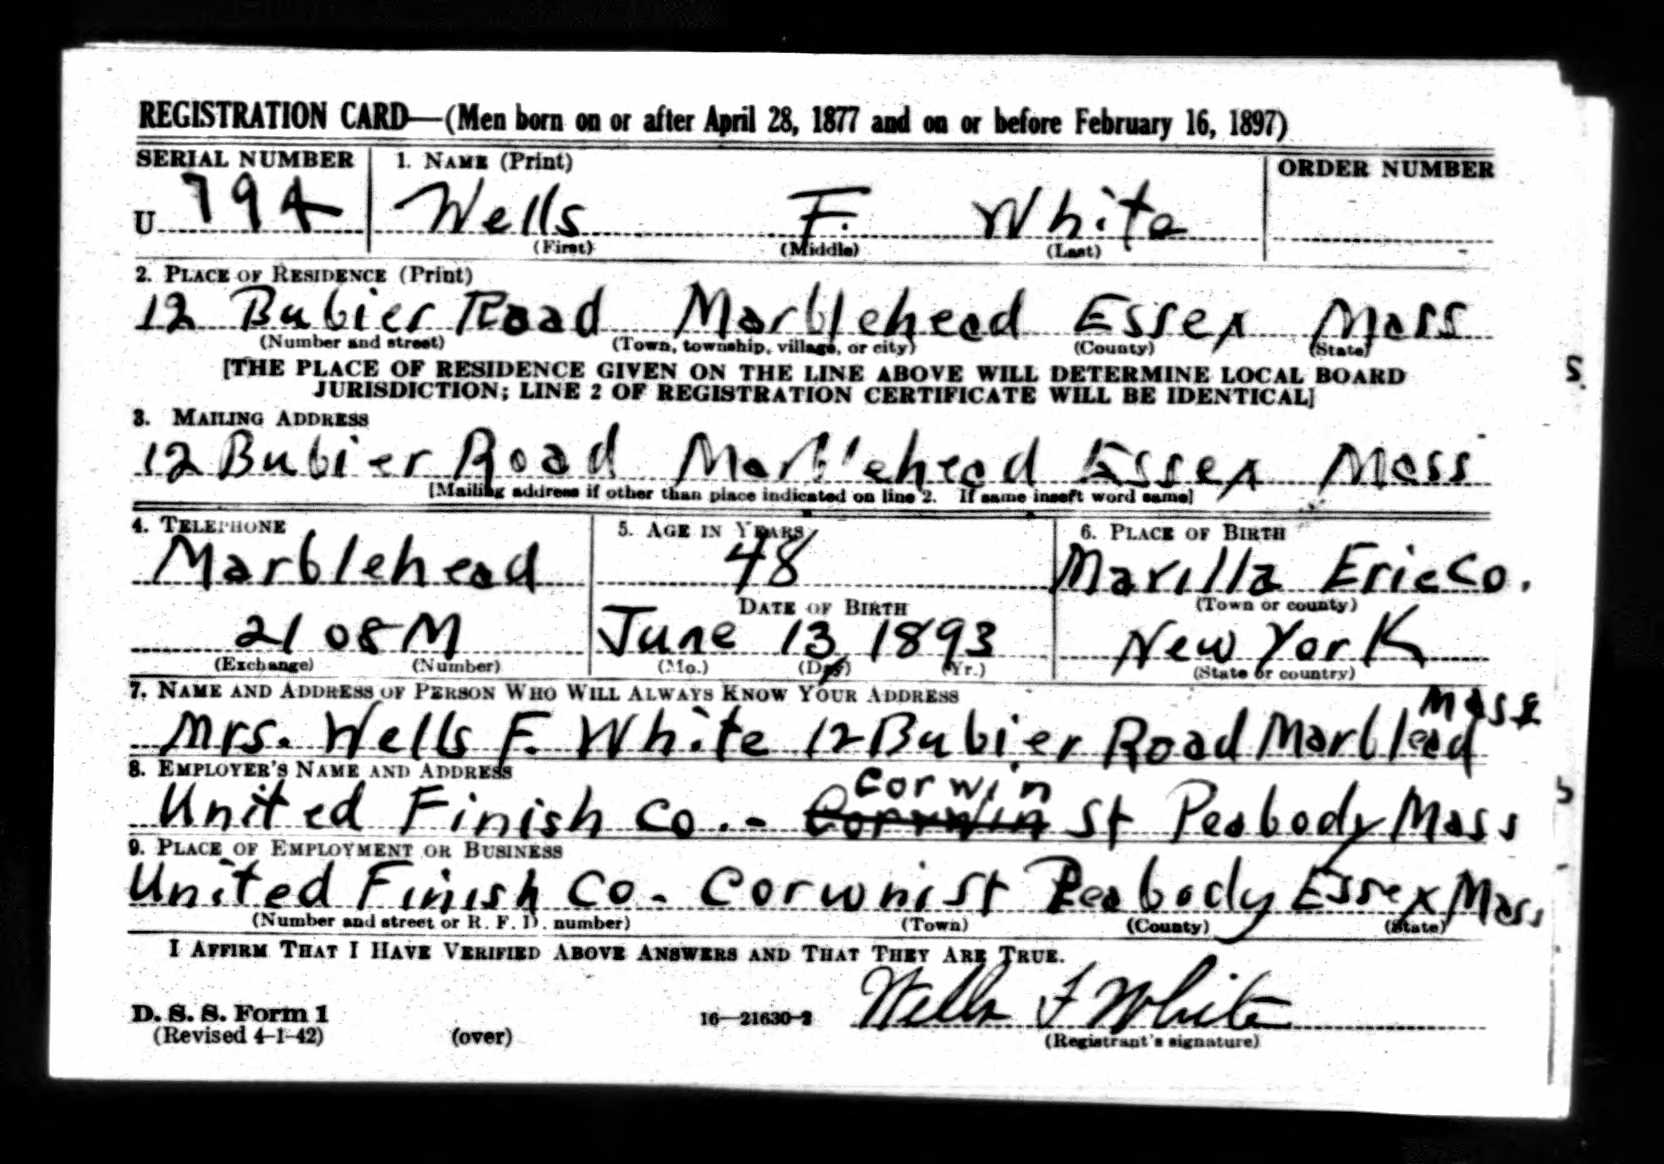 REGISTRATION CARD—(Men born on or after April 28, 1877 and on or before February 16, 1897)
SERIAL NUMBER 1. NAME (Print) ORDER NUMBER
U 794 Wells F. White
(First) (Middle) (Last)
2. PLACE OF RESIDENCE (Print)
12 Bubier Road Marblehead Essex Mass
(Number and street) (Town, township, village, or city) (County) (State)
[THE PLACE OF RESIDENCE GIVEN ON THE LINE ABOVE WILL DETERMINE LOCAL BOARD
JURISDICTION; LINE 2 OF REGISTRATION CERTIFICATE WILL BE IDENTICAL]
3. MAILING ADDRESS
12 Bubier Road Marblehead Essex Mass
[Mailing address if other than place indicated on line 2. If same insert word same]
4. TELEPHONE 5. AGE IN YEARS 6. PLACE OF BIRTH
Marblehead 48 Marilla Erie Co.
DATE OF BIRTH (Town or county)
2108M June 13, 1893 New York
(Exchange) (Number) (Mo.) (Day) (Yr.) (State or country)
7. NAME AND ADDRESS OF PERSON WHO WILL ALWAYS KNOW YOUR ADDRESS
Mass
Mrs. Wells F. White 12 Bubier Road Marblead
8. EMPLOYER'S NAME AND ADDRESS
Corwin
United Finish Co. - Corrwin St Peabody Mass
9. PLACE OF EMPLOYMENT OR BUSINESS
United Finish Co. Corwni St Peabody Essex Mass
(Number and street or R. F. D. number) (Town) (County) (State)
I AFFIRM THAT I HAVE VERIFIED ABOVE ANSWERS AND THAT THEY ARE TRUE.
Wells F White
D. S. S. Form 1
(Revised 4-1-42) (over) 16—21630-2 (Registrant's signature)